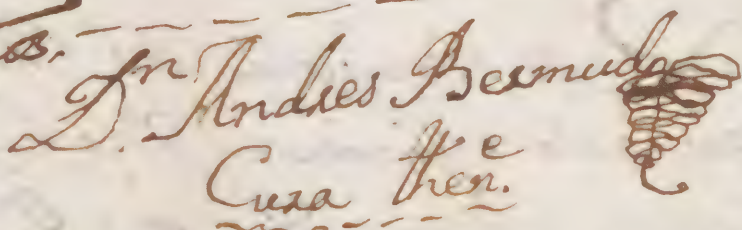 Dn. Andres Bermudo
Cura thene.